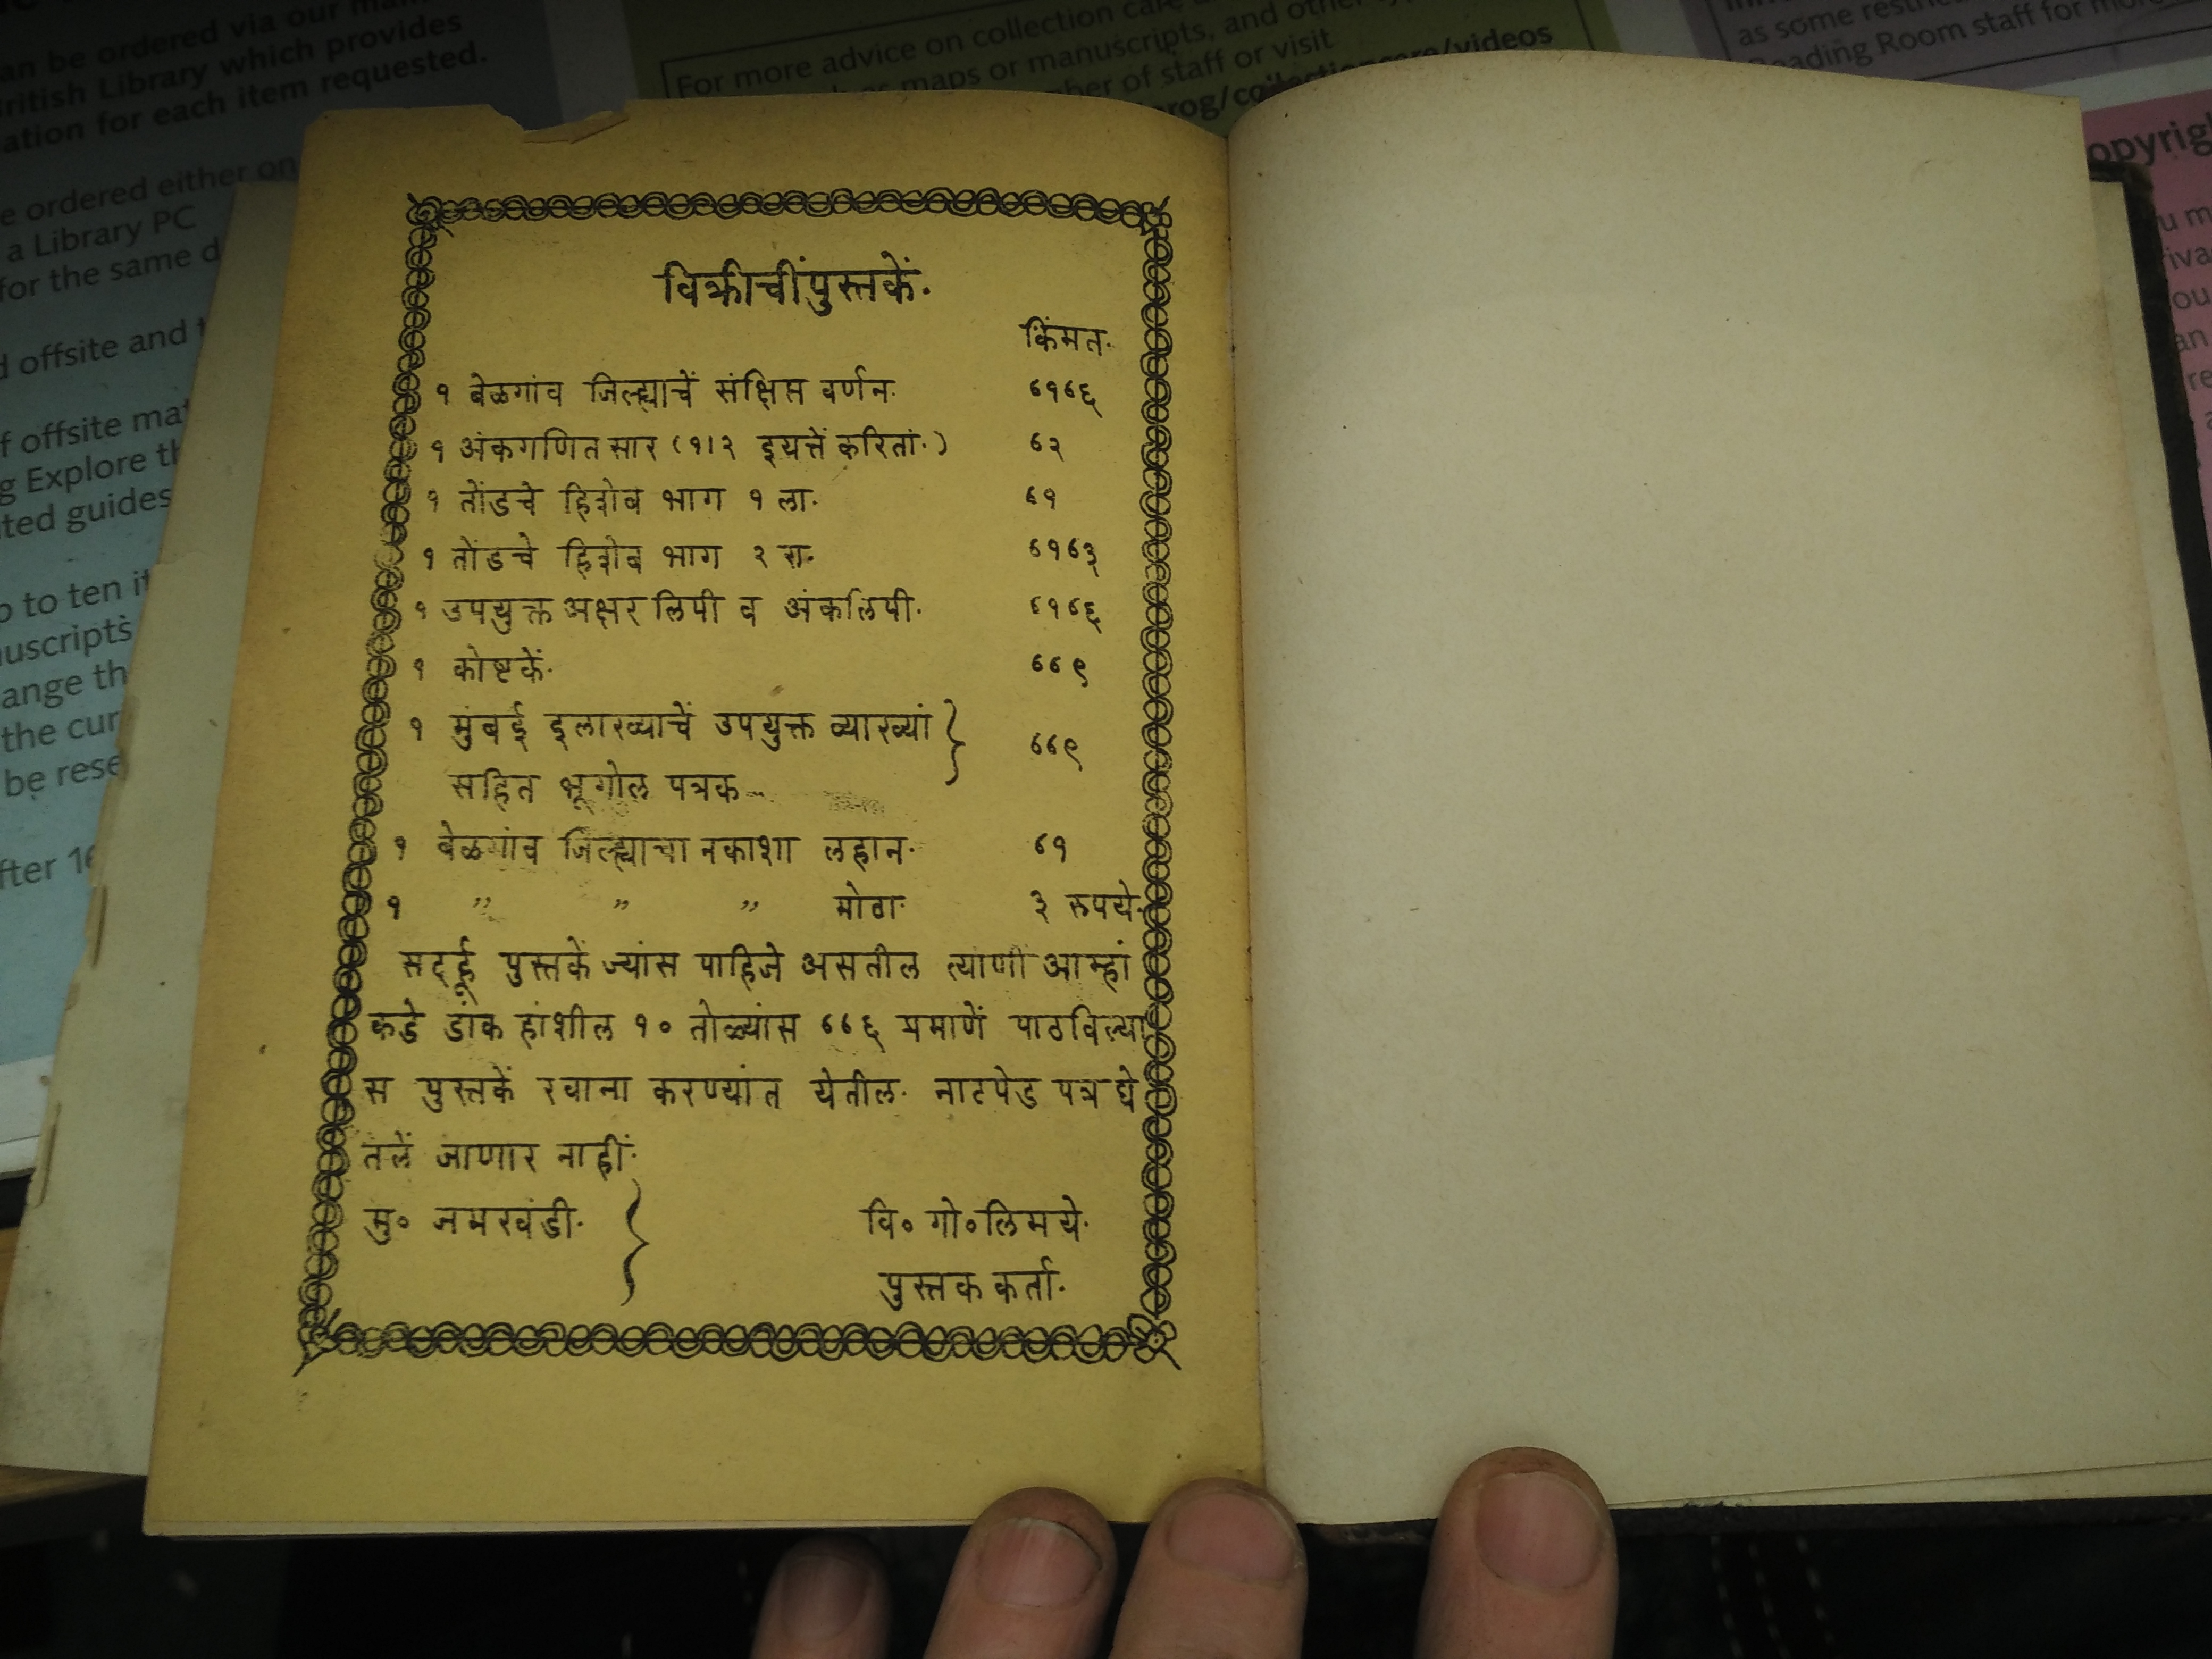 an be ordered via our
British Library which provides
ation for each item requested.
e ordered either on
a Library PC
for the same
d offsite and
f offsite
g Explore
ted guides
to ten
uscripts
ange
the
be
fter
For more advice on collection care
maps or manuscripts, and other
of staff or visit
as some
Reading Room staff for
विक्रीचींपुस्तकें.
किंमत.
१ बेळगांव जिल्ह्याचें संक्षिप्त वर्णन. ८१८६
१ अंकगणित सार (१।२ इयत्तें करितां.) ८२
१ तोंडचे हिशेब भाग १ ला. ८१
१ तोंडचे हिशेब भाग २ रा. ८१८३
१ उपयुक्त अक्षर लिपी व अंकलिपी. ८१८६
१ कोष्टकें. ८८९
१ मुंबई इलाख्याचें उपयुक्त व्याख्यां } ८८९
सहित भूगोल पत्रक
१ बेळगांव जिल्ह्याचा नकाशा लहान. ८१
१ " " " मोठा. ३ रुपये.
सदर्हू पुस्तकें ज्यांस पाहिजे असतील त्याणीं आम्हां
कडे डांक हांशील १० तोळ्यांस ८८६ प्रमाणें पाठविल्या
स पुस्तकें रवाना करण्यांत येतील. नाटपेड पत्र घे
तलें जाणार नाहीं.
मु० जमखंडी. } वि० गो० लिमये.
पुस्तक कर्ता.